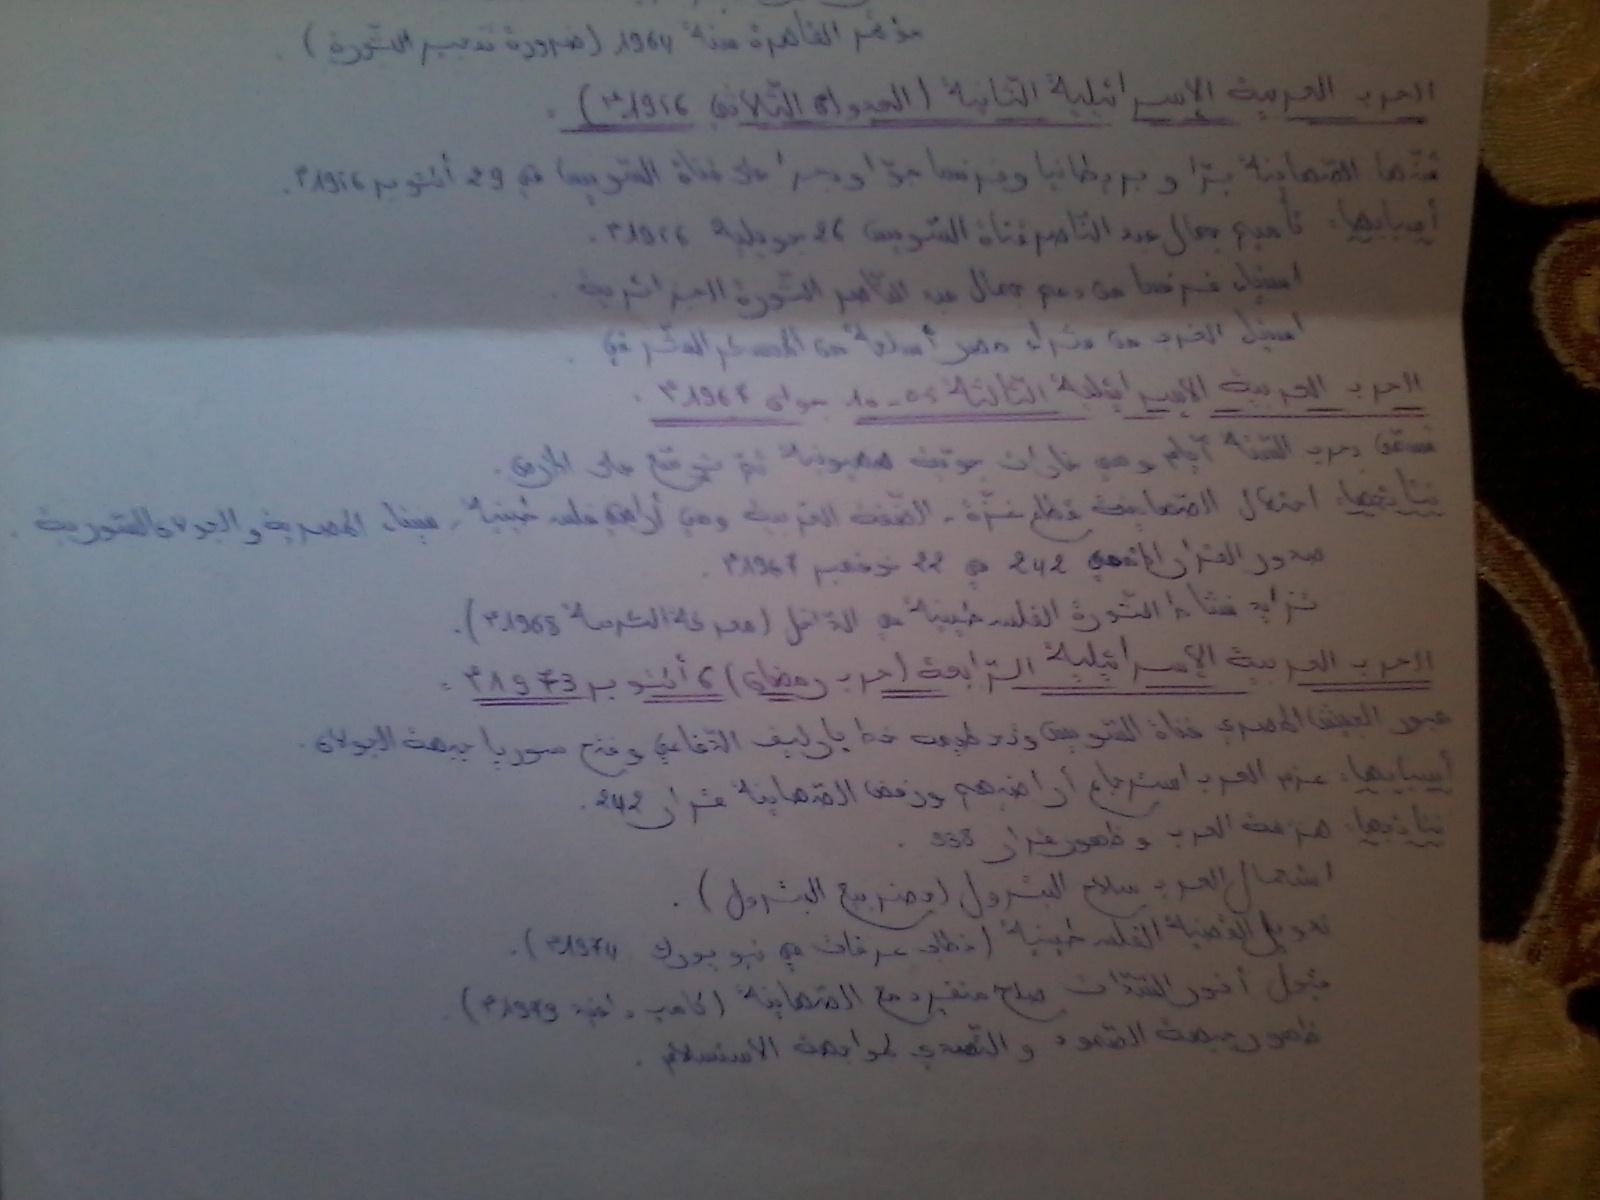 مؤتمر القاهرة سنة 1964 (ضرورة تدعيم الثورة).
الحرب العربية الإسرائيلية الثانية (العدوان الثلاثي 1956م).
شنّها الصهاينة برّا و بريطانيا وفرنسا جوّا وبحرا على قناة السّويس في 29 أكتوبر 1956م.
أسبابها: تأميم جمال عبد النّاصر قناة السّويس 26 جويلية 1956م.
استياء فرنسا من دعم جمال عبد النّاصر الثّورة الجزائرية.
استياء الغرب من شراء مصر أسلحة من المعسكر الشّرقي.
الحرب العربية الإسرائيلية الثالثة 05-10 جوان 1967م.
تسمّى حرب السّتة أيام وهي غارات جوّية صهيونية ثم توسّع على الأرض.
نتائجها: احتلال الصّهاينة قطاع غزّة - الضّفة الغربية وهي أراضي فلسطينية - سيناء المصرية و الجولان السّورية.
صدور القرار الأممي 242 في 22 نوفمبر 1967م.
تزايد نشاط الثّورة الفلسطينية في الدّاخل (معركة الكرامة 1968م).
الحرب العربية الإسرائيلية الرّابعة (حرب رمضان) 6 أكتوبر 1973م:
عبور الجيش المصري قناة السّويس وتحطيمه خط بارليف الدّفاعي وفتح سوريا جبهة الجولان.
أسبابها: عزم العرب استرجاع أراضيهم ورفض الصّهاينة قرار 242.
نتائجها: هزيمة العرب و ظهور قرار 338.
استعمال العرب سلاح البترول ( البترول).
تدويل القضية الفلسطينية (خطاب عرفات في نيويورك 1974م).
قبول أنور السّادات صلح منفرد مع الصّهاينة (كامب دافيد 1979م)
ظهور جبهة الصّمود و التّصدي لمواجهة الاستسلام.